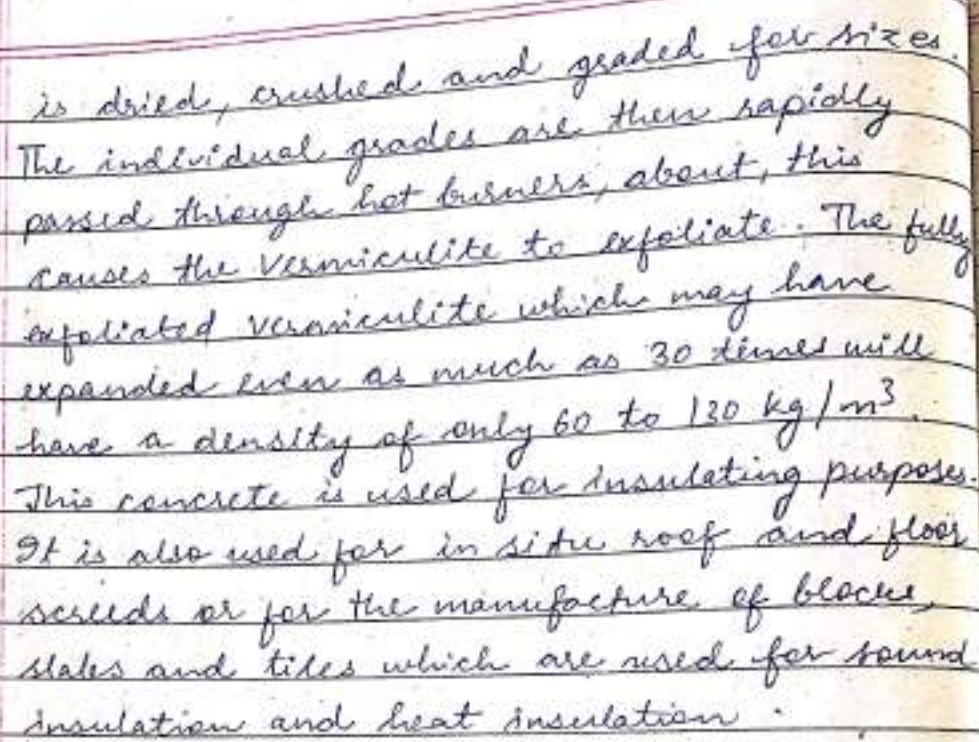 is dried, crushed and graded for sizes.
The individual grades are then rapidly
passed through hot burners, about, this
causes the vermiculite to exfoliate. The fully
exfoliated vermiculite which may have
expanded even as much as 30 times will
have a density of only 60 to 130 kg/m³.
This concrete is used for insulating purposes.
It is also used for in situ roof and floor
screeds or for the manufacture of blocks,
slabs and tiles which are used for sound
insulation and heat insulation.